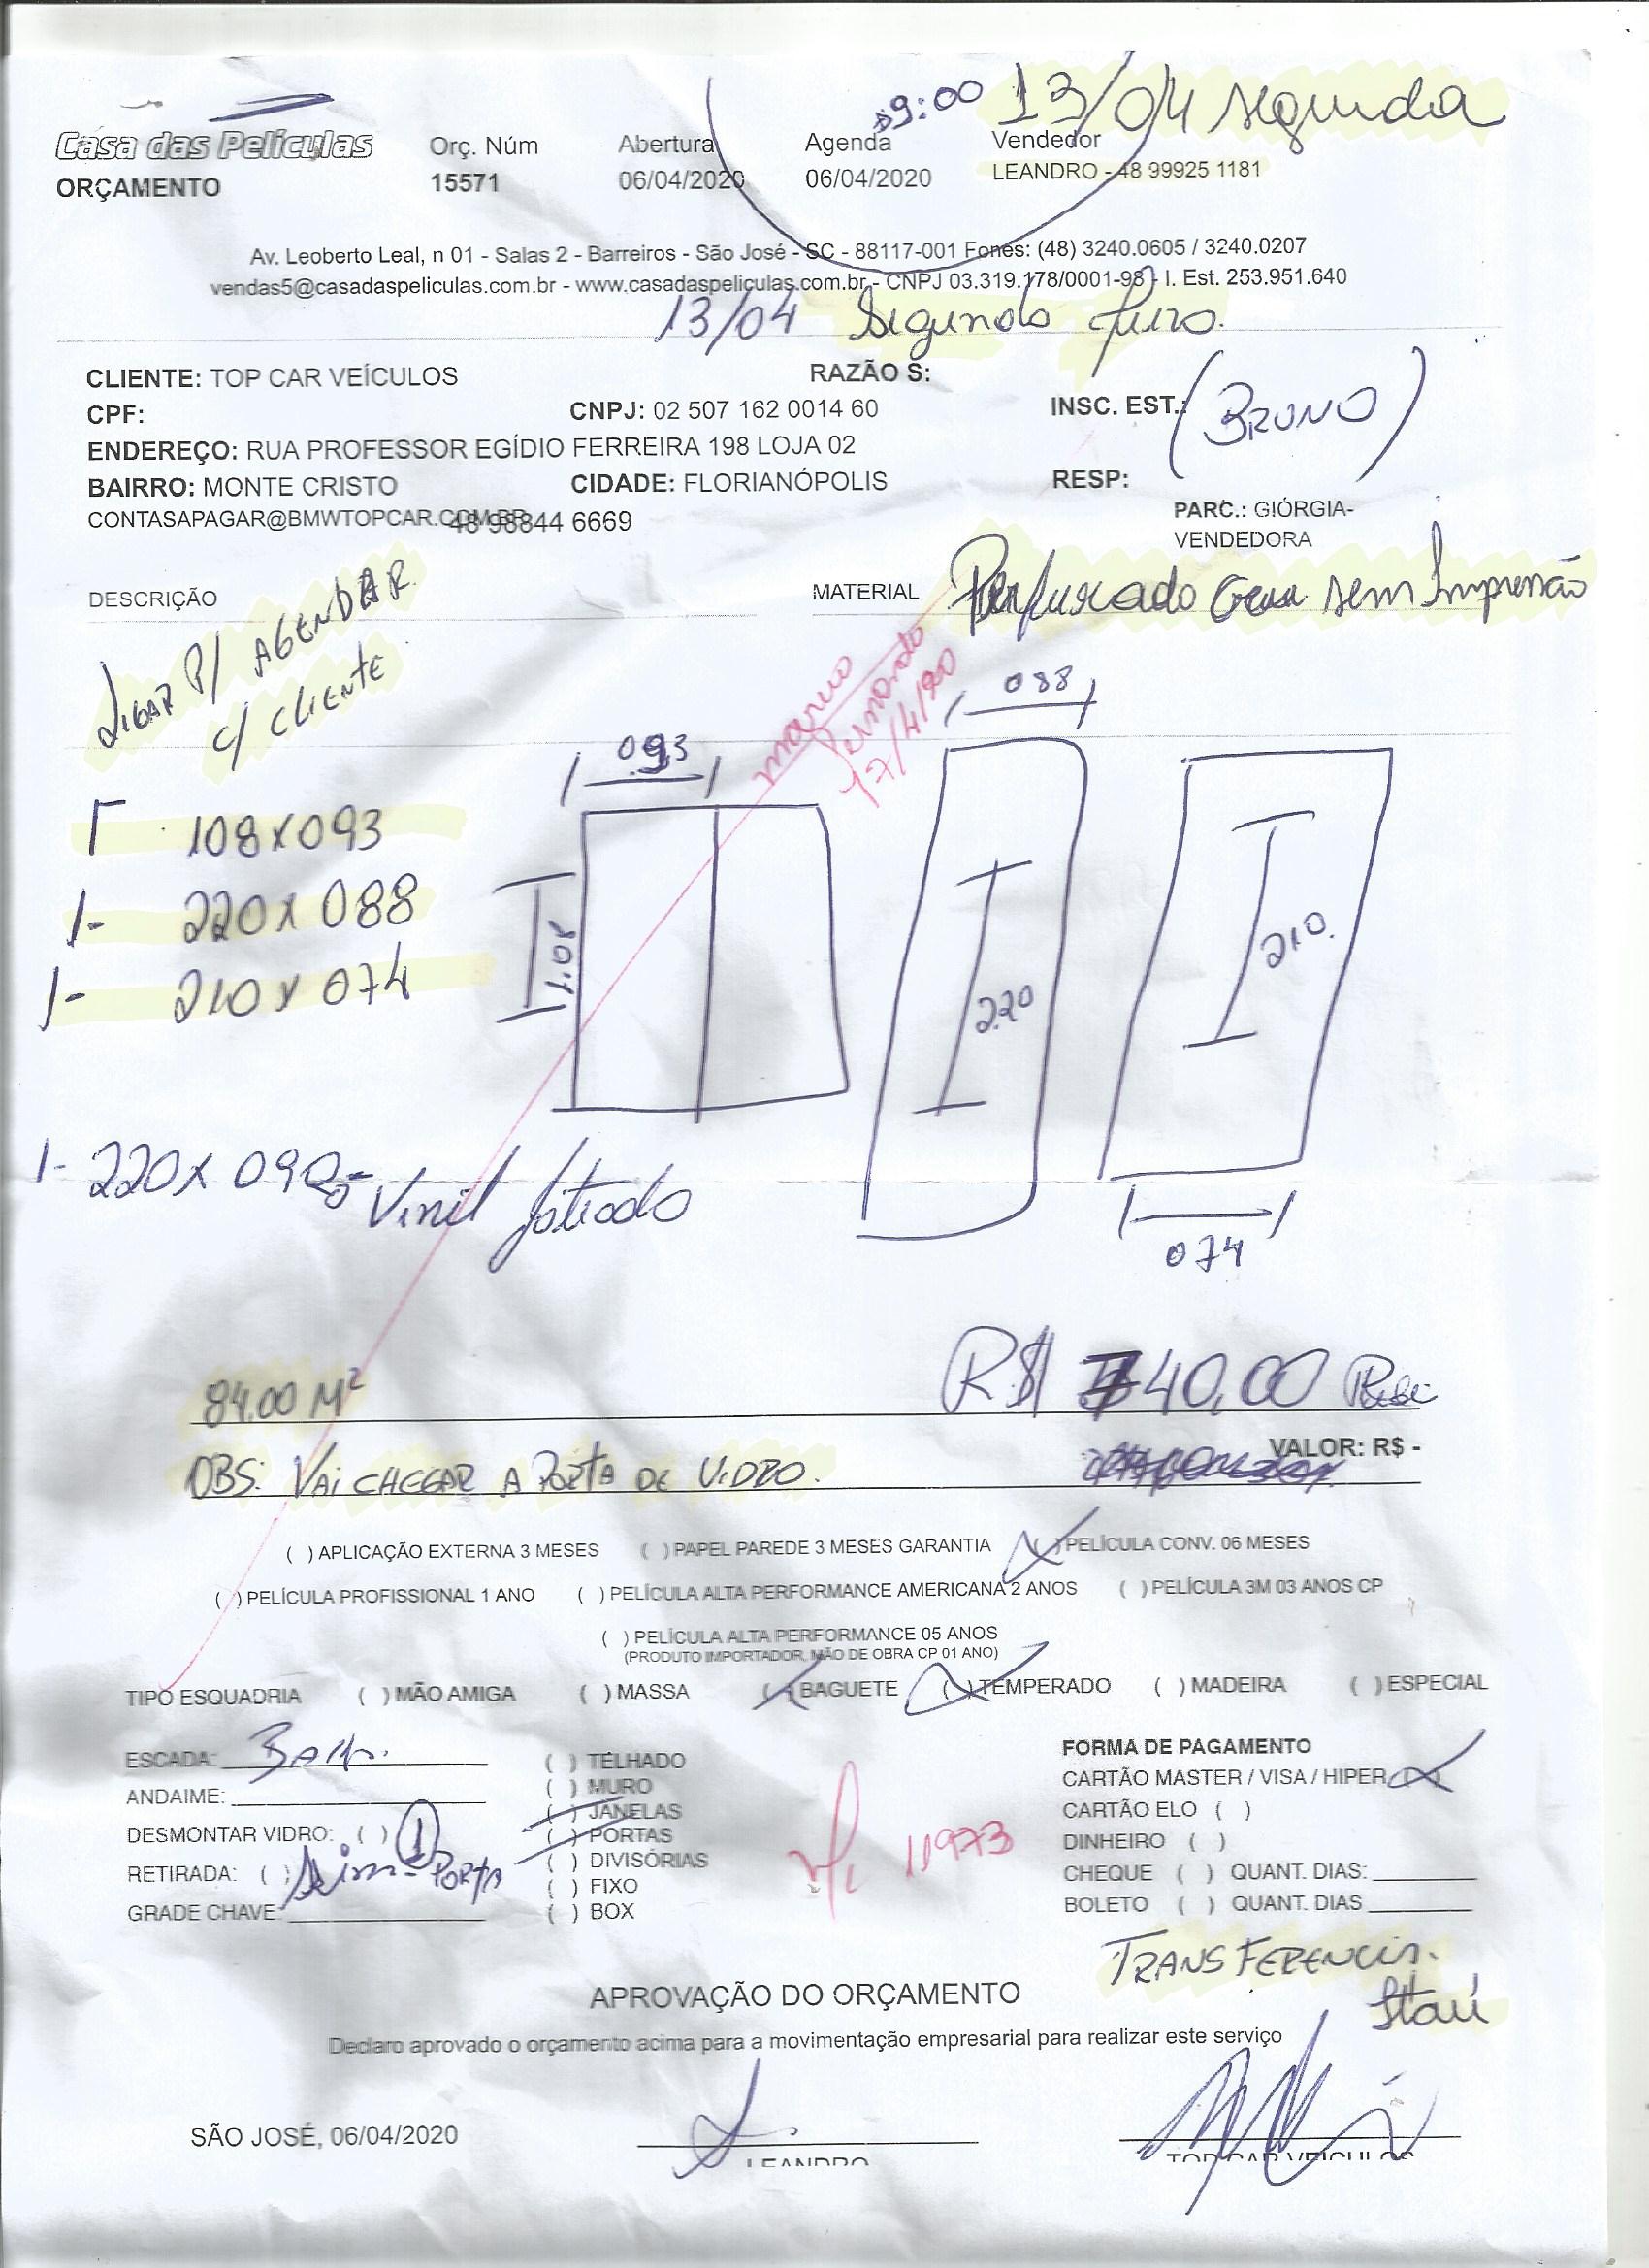 9:00 13/04 segunda
Casa das Películas
ORÇAMENTO
Orç. Núm
15571
Abertura
06/04/2020
Agenda
06/04/2020
Vendedor
LEANDRO - 48 99925 1181
Av. Leoberto Leal, n 01 - Salas 2 - Barreiros - São José - SC - 88117-001 Fones: (48) 3240.0605 / 3240.0207
vendas5@casadaspeliculas.com.br - www.casadaspeliculas.com.br - CNPJ 03.319.178/0001-98 - I. Est. 253.951.640
13/04 Segunda feira.
CLIENTE: TOP CAR VEÍCULOS
RAZÃO S:
CPF:
CNPJ: 02 507 162 0014 60
INSC. EST.:
(BRUNO)
ENDEREÇO: RUA PROFESSOR EGÍDIO FERREIRA 198 LOJA 02
BAIRRO: MONTE CRISTO
CIDADE: FLORIANÓPOLIS
RESP:
CONTASAPAGAR@BMWTOPCAR.COM.BR
48 98844 6669
PARC.: GIÓRGIA-
VENDEDORA
DESCRIÇÃO
MATERIAL
Perfurado sem Impressão
LIGAR P/ AGENDAR
C/ CLIENTE
Marcio
Fernando
17/4/20
093
088
1- 108x093
1- 220x088
1- 210x074
1.08
220
210.
074
1- 220x090 - Vinil Jateado
84.00 M²
R$ 740,00
OBS: VAI CHEGAR A PORTA DE VIDRO.
VALOR: R$ -
( ) APLICAÇÃO EXTERNA 3 MESES ( ) PAPEL PAREDE 3 MESES GARANTIA ( ) PELÍCULA CONV. 06 MESES
( ) PELÍCULA PROFISSIONAL 1 ANO ( ) PELÍCULA ALTA PERFORMANCE AMERICANA 2 ANOS ( ) PELÍCULA 3M 03 ANOS CP
( ) PELÍCULA ALTA PERFORMANCE 05 ANOS
(PRODUTO IMPORTADOR, MÃO DE OBRA CP 01 ANO)
TIPO ESQUADRIA ( ) MÃO AMIGA ( ) MASSA ( ) BAGUETE ( ) TEMPERADO ( ) MADEIRA ( ) ESPECIAL
ESCADA:
ANDAIME:
DESMONTAR VIDRO: ( ) 1
RETIRADA: ( ) Sim - PORTA
GRADE CHAVE:
( ) TELHADO
( ) MURO
( ) JANELAS
( ) PORTAS
( ) DIVISÓRIAS
( ) FIXO
( ) BOX
11973
FORMA DE PAGAMENTO
CARTÃO MASTER / VISA / HIPER ( )
CARTÃO ELO ( )
DINHEIRO ( )
CHEQUE ( ) QUANT. DIAS:
BOLETO ( ) QUANT. DIAS
TRANSFERENCIA.
Itaú
APROVAÇÃO DO ORÇAMENTO
Declaro aprovado o orçamento acima para a movimentação empresarial para realizar este serviço
SÃO JOSÉ, 06/04/2020
LEANDRO
TOP CAR VEICULOS